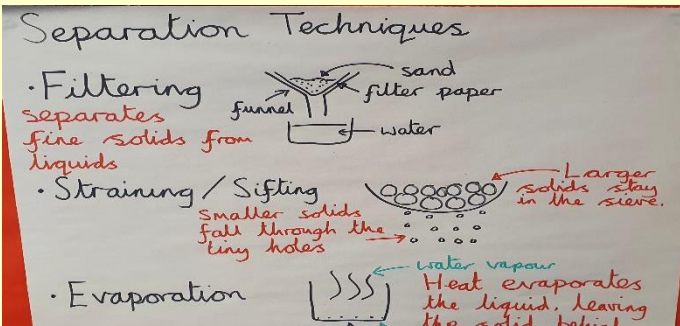 Separation Techniques
· Filtering
separates
fine solids from
liquids
sand
filter paper
funnel
water
· Straining / Sifting
Smaller solids
fall through the
tiny holes
Larger
solids stay
in the sieve.
· Evaporation
water vapour
Heat evaporates
the liquid, leaving
the solid behind